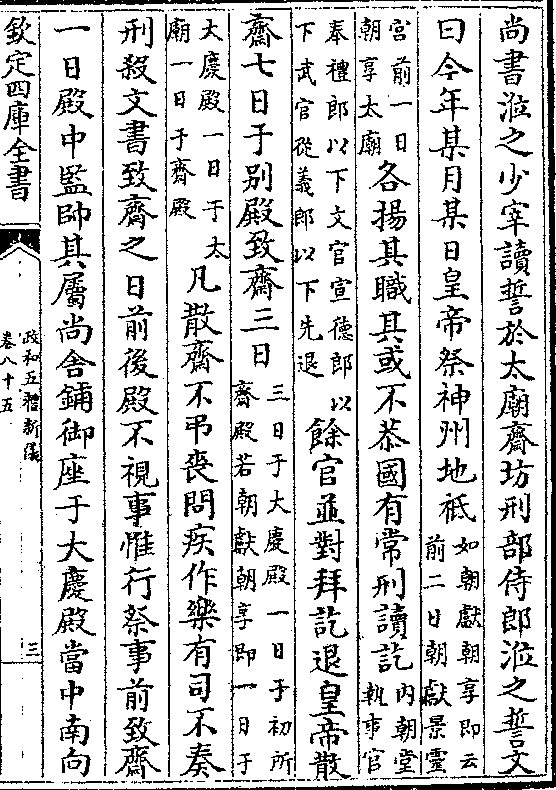 尚書涖之少宰讀誓於太廟齋坊刑部侍郎涖之誓文
曰今年某月某日皇帝祭神州地祗如朝獻朝享即云
前二日朝獻景靈
宮前一日
朝享太廟各揚其職其或不恭國有常刑讀訖內朝堂
執事官
奉禮郎以下文官宣德郎以
下武官從義郎以下先退餘官並對拜訖退皇帝散
齋七日于别殿致齋三日三日于大慶殿一日于初所
齋殿若朝獻朝享即一日于
大慶殿一日于太
廟一日于齋殿凡散齋不弔喪問疾作樂有司不奏
刑殺文書致齋之日前後殿不視事惟行祭事前致齋
一日殿中監帥其屬尚舍鋪御座于大慶殿當中南向
欽定四庫全書
政和五禮新儀
卷八十五
三